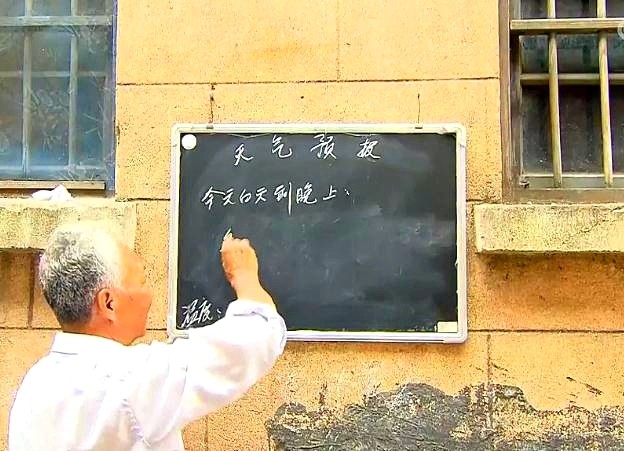 天气预报
今天白天到晚上：
温度：